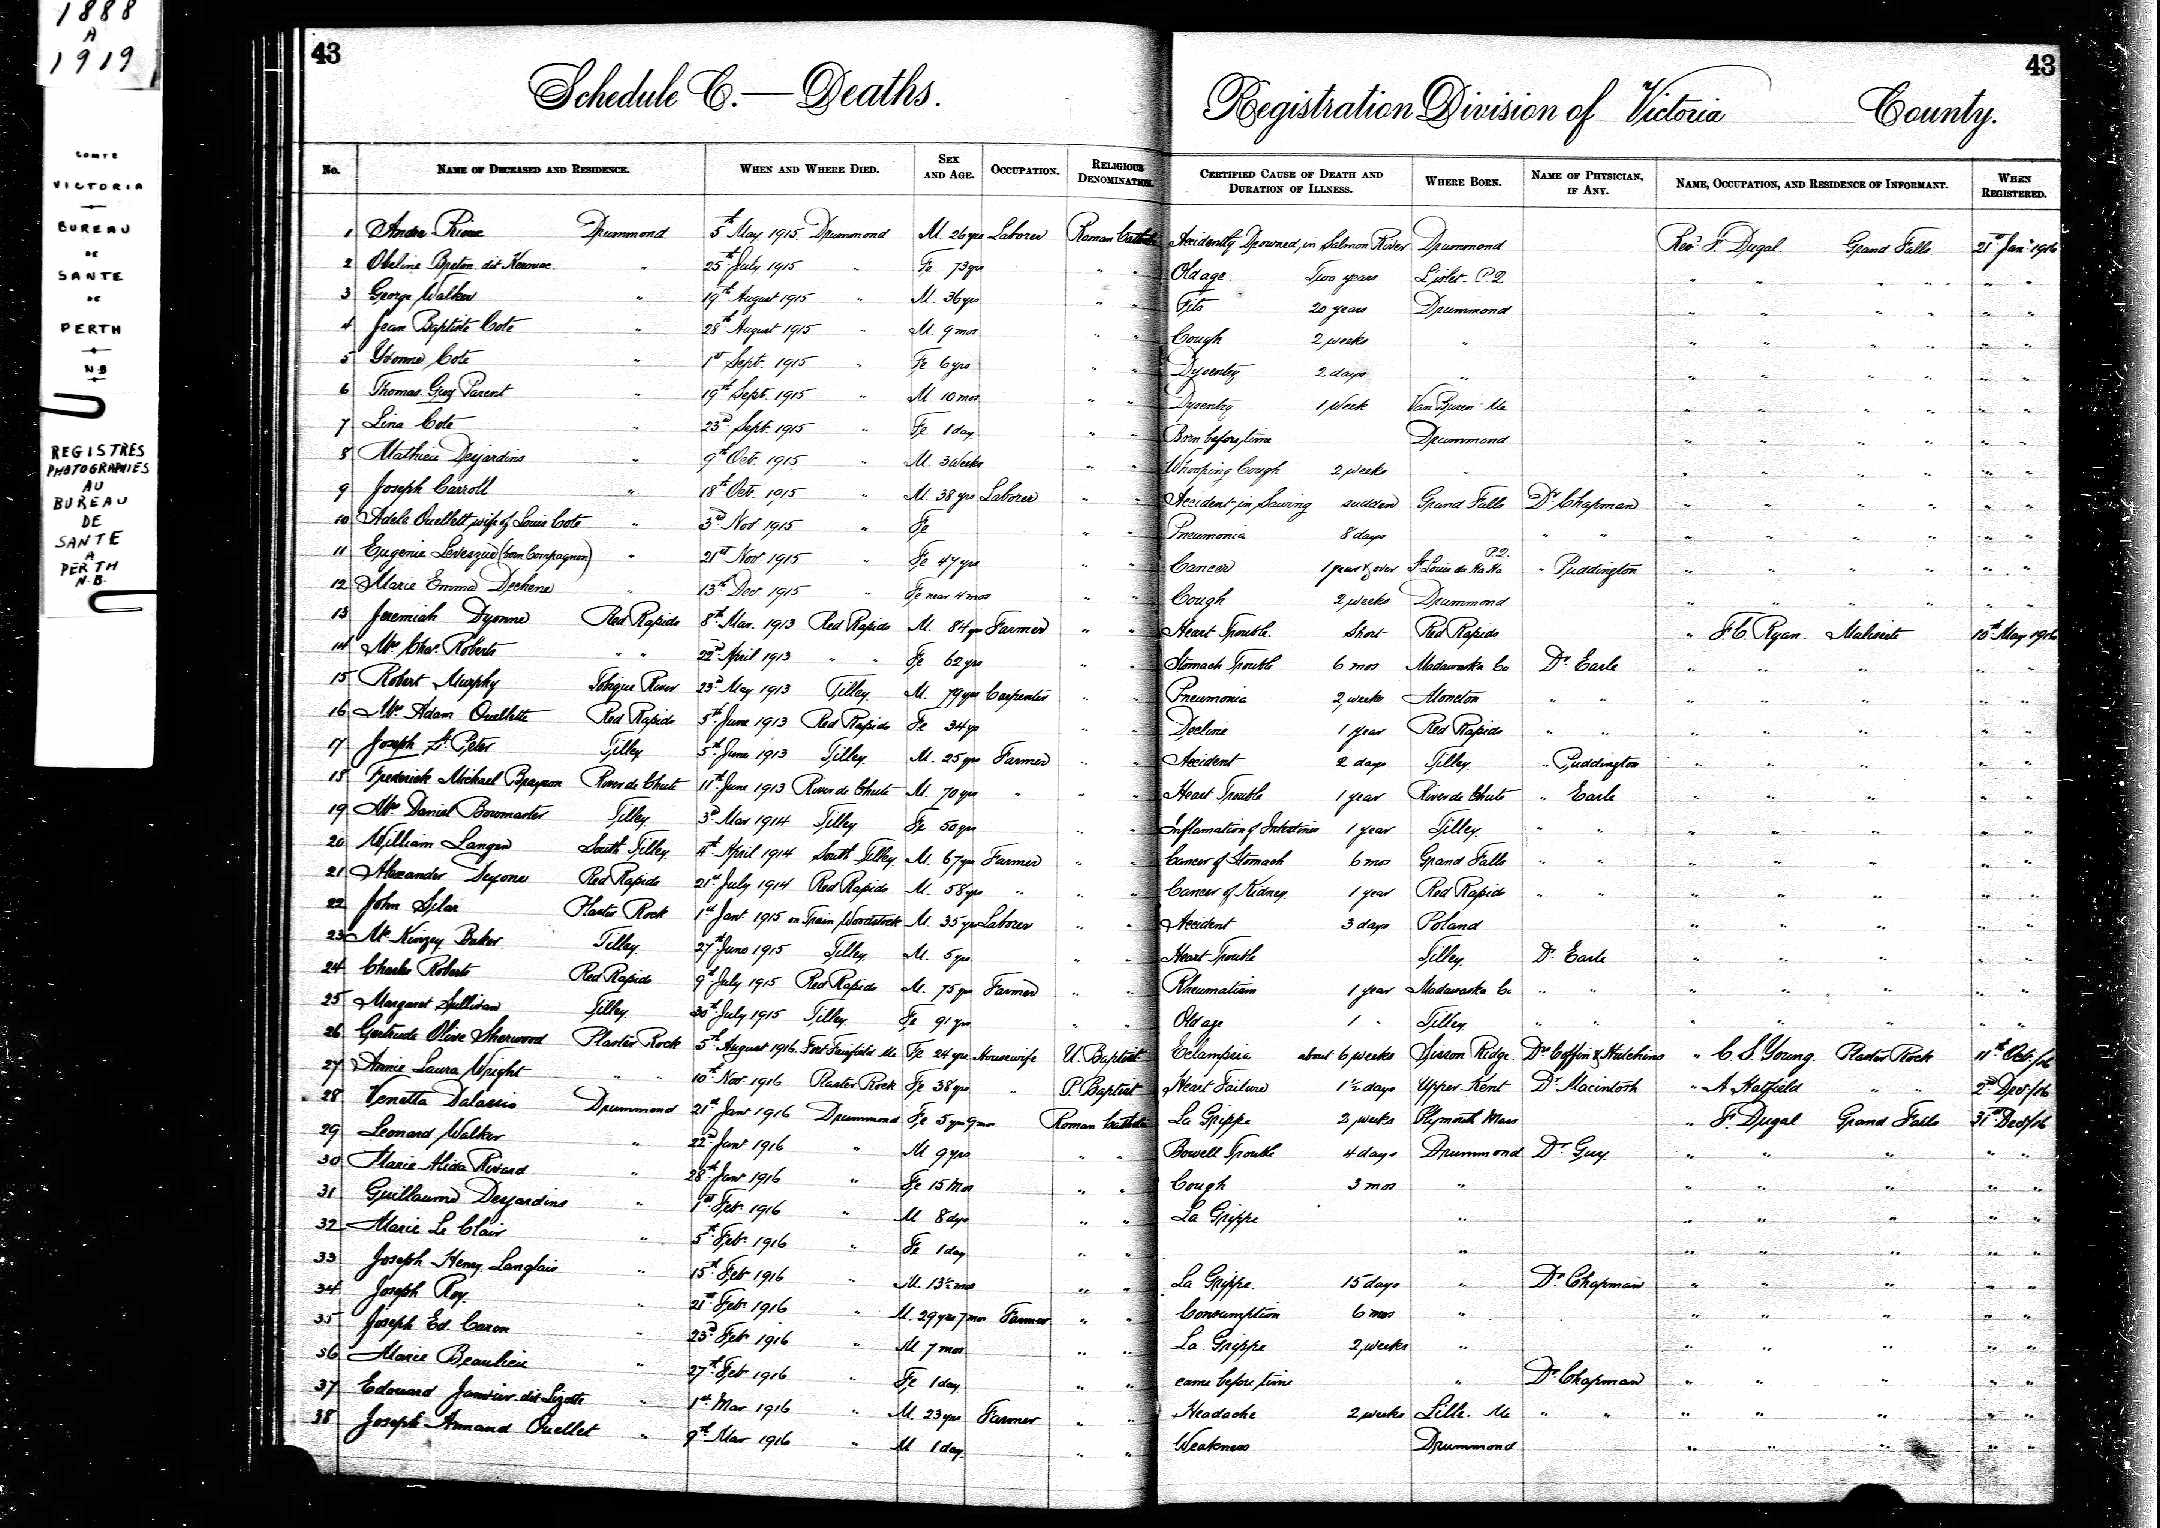 1888
A
1919
COMTE
VICTORIA
BUREAU
DE
SANTE
DE
PERTH
N.B
REGISTRES
PHOTOGRAPHIES
AU
BUREAU
DE
SANTE
A
PERTH
N.B.
43
43
Schedule C.—Deaths. Registration Division of Victoria County.
No. NAME OF DECEASED AND RESIDENCE. WHEN AND WHERE DIED. SEX AND AGE. OCCUPATION. RELIGIOUS DENOMINATION. CERTIFIED CAUSE OF DEATH AND DURATION OF ILLNESS. WHERE BORN. NAME OF PHYSICIAN, IF ANY. NAME, OCCUPATION, AND RESIDENCE OF INFORMANT. WHEN REGISTERED.
1 Andre Drummond 5th May 1915 Drummond M. 26 yrs Laborer Roman Catholic Accidently Drowned in Salmon River Drummond Revd F. Dugal Grand Falls 21st Jany 1916
2 Obeline Breton dit " 25th July 1915 " Fe 73 yrs " " Old age Two years Lislet P.Q. " " " " " "
3 George Walker " 19th August 1915 " M. 36 yrs " " Fits 20 years Drummond " " " " " "
4 Jean Baptiste Cote " 28th August 1915 " M. 9 mos " " Cough 2 weeks " " " " " " "
5 Yvonne Cote " 1st Sept. 1915 " Fe 6 yrs " " Dysentry 2 days " " " " " " "
6 Thomas Guy Parent " 19th Sept. 1915 " M 10 mos " " Dysentry 1 Week Van Buren Me " " " " " "
7 Lina Cote " 23rd Sept. 1915 " Fe 1 day " " Born before time Drummond " " " " " "
8 Mathieu Desjardins " 9th Oct. 1915 " M. 3 Weeks " " Whooping Cough 2 weeks " " " " " " "
9 Joseph Carroll " 18th Oct. 1915 " M. 38 yrs Laborer " " Accident in Sawing sudden Grand Falls Dr Chapman " " " " " "
10 Adele Ouellett, wife of Louis Cote " 3rd Nov 1915 " Fe " " Pneumonia 8 days " " " " " " " "
11 Eugenie Levesque (born Compagnon) " 21st Nov 1915 " Fe 47 yrs " " Cancer 1 year & over St Louis du Ha Ha P.Q. " Puddington " " " " " "
12 Marie Emma Dechene " 13th Dec. 1915 " Fe near 4 mos " " Cough 2 weeks Drummond " " " " " "
13 Jeremiah Dyonne Red Rapids 8th Mar. 1913 Red Rapids M. 84 yrs Farmer " " Heart Trouble. Short Red Rapids " F.C. Ryan Maliseete 10th May 1916
14 Mrs Chas. Roberts " " 22nd April 1913 " " Fe 62 yrs " " Stomach Trouble 6 mos Madawaska Co Dr Earle " " " " "
15 Robert Murphy Tobique River 23rd May 1913 Tilley M. 79 yrs Carpenter " " Pneumonia 2 weeks Moncton " " " " " " "
16 Mrs Adam Ouellette Red Rapids 5th June 1913 Red Rapids Fe 34 yrs " " Decline 1 year Red Rapids " " " " " " "
17 Joseph St. Peter Tilley 5th June 1913 Tilley M. 25 yrs Farmer " " Accident 2 days Tilley " Puddington " " " " "
18 Frederick Michael River de Chute 11th June 1913 River de Chute M. 70 yrs " " " Heart Trouble 1 year River de Chute " Earle " " " " "
19 Mrs Daniel Bowmaster Tilley 3rd Mar 1914 Tilley Fe 50 yrs " " Inflamation of Intestines 1 year Tilley. " " " " " " "
20 William Langen South Tilley 4th April 1914 South Tilley M. 67 yrs Farmer " " Cancer of Stomach 6 mos Grand Falls " " " " " " "
21 Alexander Deyone Red Rapids 21st July 1914 Red Rapids M. 58 yrs " " " Cancer of Kidney 1 year Red Rapids " " " " " " "
22 John Plaster Rock 1st Jany 1915 on Train Woodstock M. 35 yrs Laborer " " Accident 3 days Poland " " " " "
23 Mc Kinzey Baker Tilley. 27th June 1915 Tilley M. 5 yrs " " Heart Trouble Tilley. Dr Earle " " " " "
24 Charles Roberts Red Rapids 9th July 1915 Red Rapids M. 75 yrs Farmer " " Rheumatism 1 year Madawaska Co " " " " " " "
25 Margaret Sullivan Tilley. 30th July 1915 Tilley. Fe 91 yrs " " Old age 1 " Tilley " " " " " " "
26 Gertrude Olive Sherwood Plaster Rock 5th August 1916 Fort Fairfield Me Fe 24 yrs Housewife U. Baptist Eclampsia about 6 weeks Sisson Ridge. Drs Coffin & Hutchins " C. S. Young Plaster Rock 11th Oct/16
27 Annie Laura Wright " " 10th Nov 1916 Plaster Rock Fe 38 yrs " P. Baptist Heart Failure 1½ days Upper Kent Dr Macintosh " A Hatfield " " 2nd Dec/16
28 Venetta Dalassio Drummond 21st Jany 1916 Drummond Fe 5 yrs 9 mos Roman Catholic La Grippe 2 weeks Plymouth Mass " F. Dugal Grand Falls 31st Dec/16
29 Leonard Walker " 22nd Jany 1916 " M 9 yrs " " Bowell Trouble 4 days Drummond Dr Guy " " " " "
30 Marie Alida Rivard " 28th Jany 1916 " Fe 15 Mos " " Cough 3 mos " " " " " "
31 Guillaume Desjardins " 1st Feb. 1916 " M 8 dys " " La Grippe " " " " " "
32 Marie Le Clair " 5th Feb. 1916 " Fe 1 day " " " " " " " "
33 Joseph Henry Langlais " 15th Feb 1916 " M. 13½ mos " " La Grippe. 15 days " Dr Chapman " " " " "
34 Joseph Roy. " 21st Feb. 1916 " M. 29 yrs 7 mos Farmer " " Consumption 6 mos " " " " " "
35 Joseph Ed. Caron " 23rd Feb 1916 " M 7 mos " " La Grippe 2 weeks " " " " " "
36 Marie Beaulieu " 27th Feb 1916 " Fe 1 day " " came before time " Dr Chapman " " " " "
37 Edouard Janvier dit Lizotte " 1st Mar 1916 " M. 23 yrs Farmer " " Headache 2 weeks Lille. Me " " " " " " "
38 Joseph Armand Ouellet " 9th Mar 1916 " M 1 day " " Weakness Drummond " " " " "